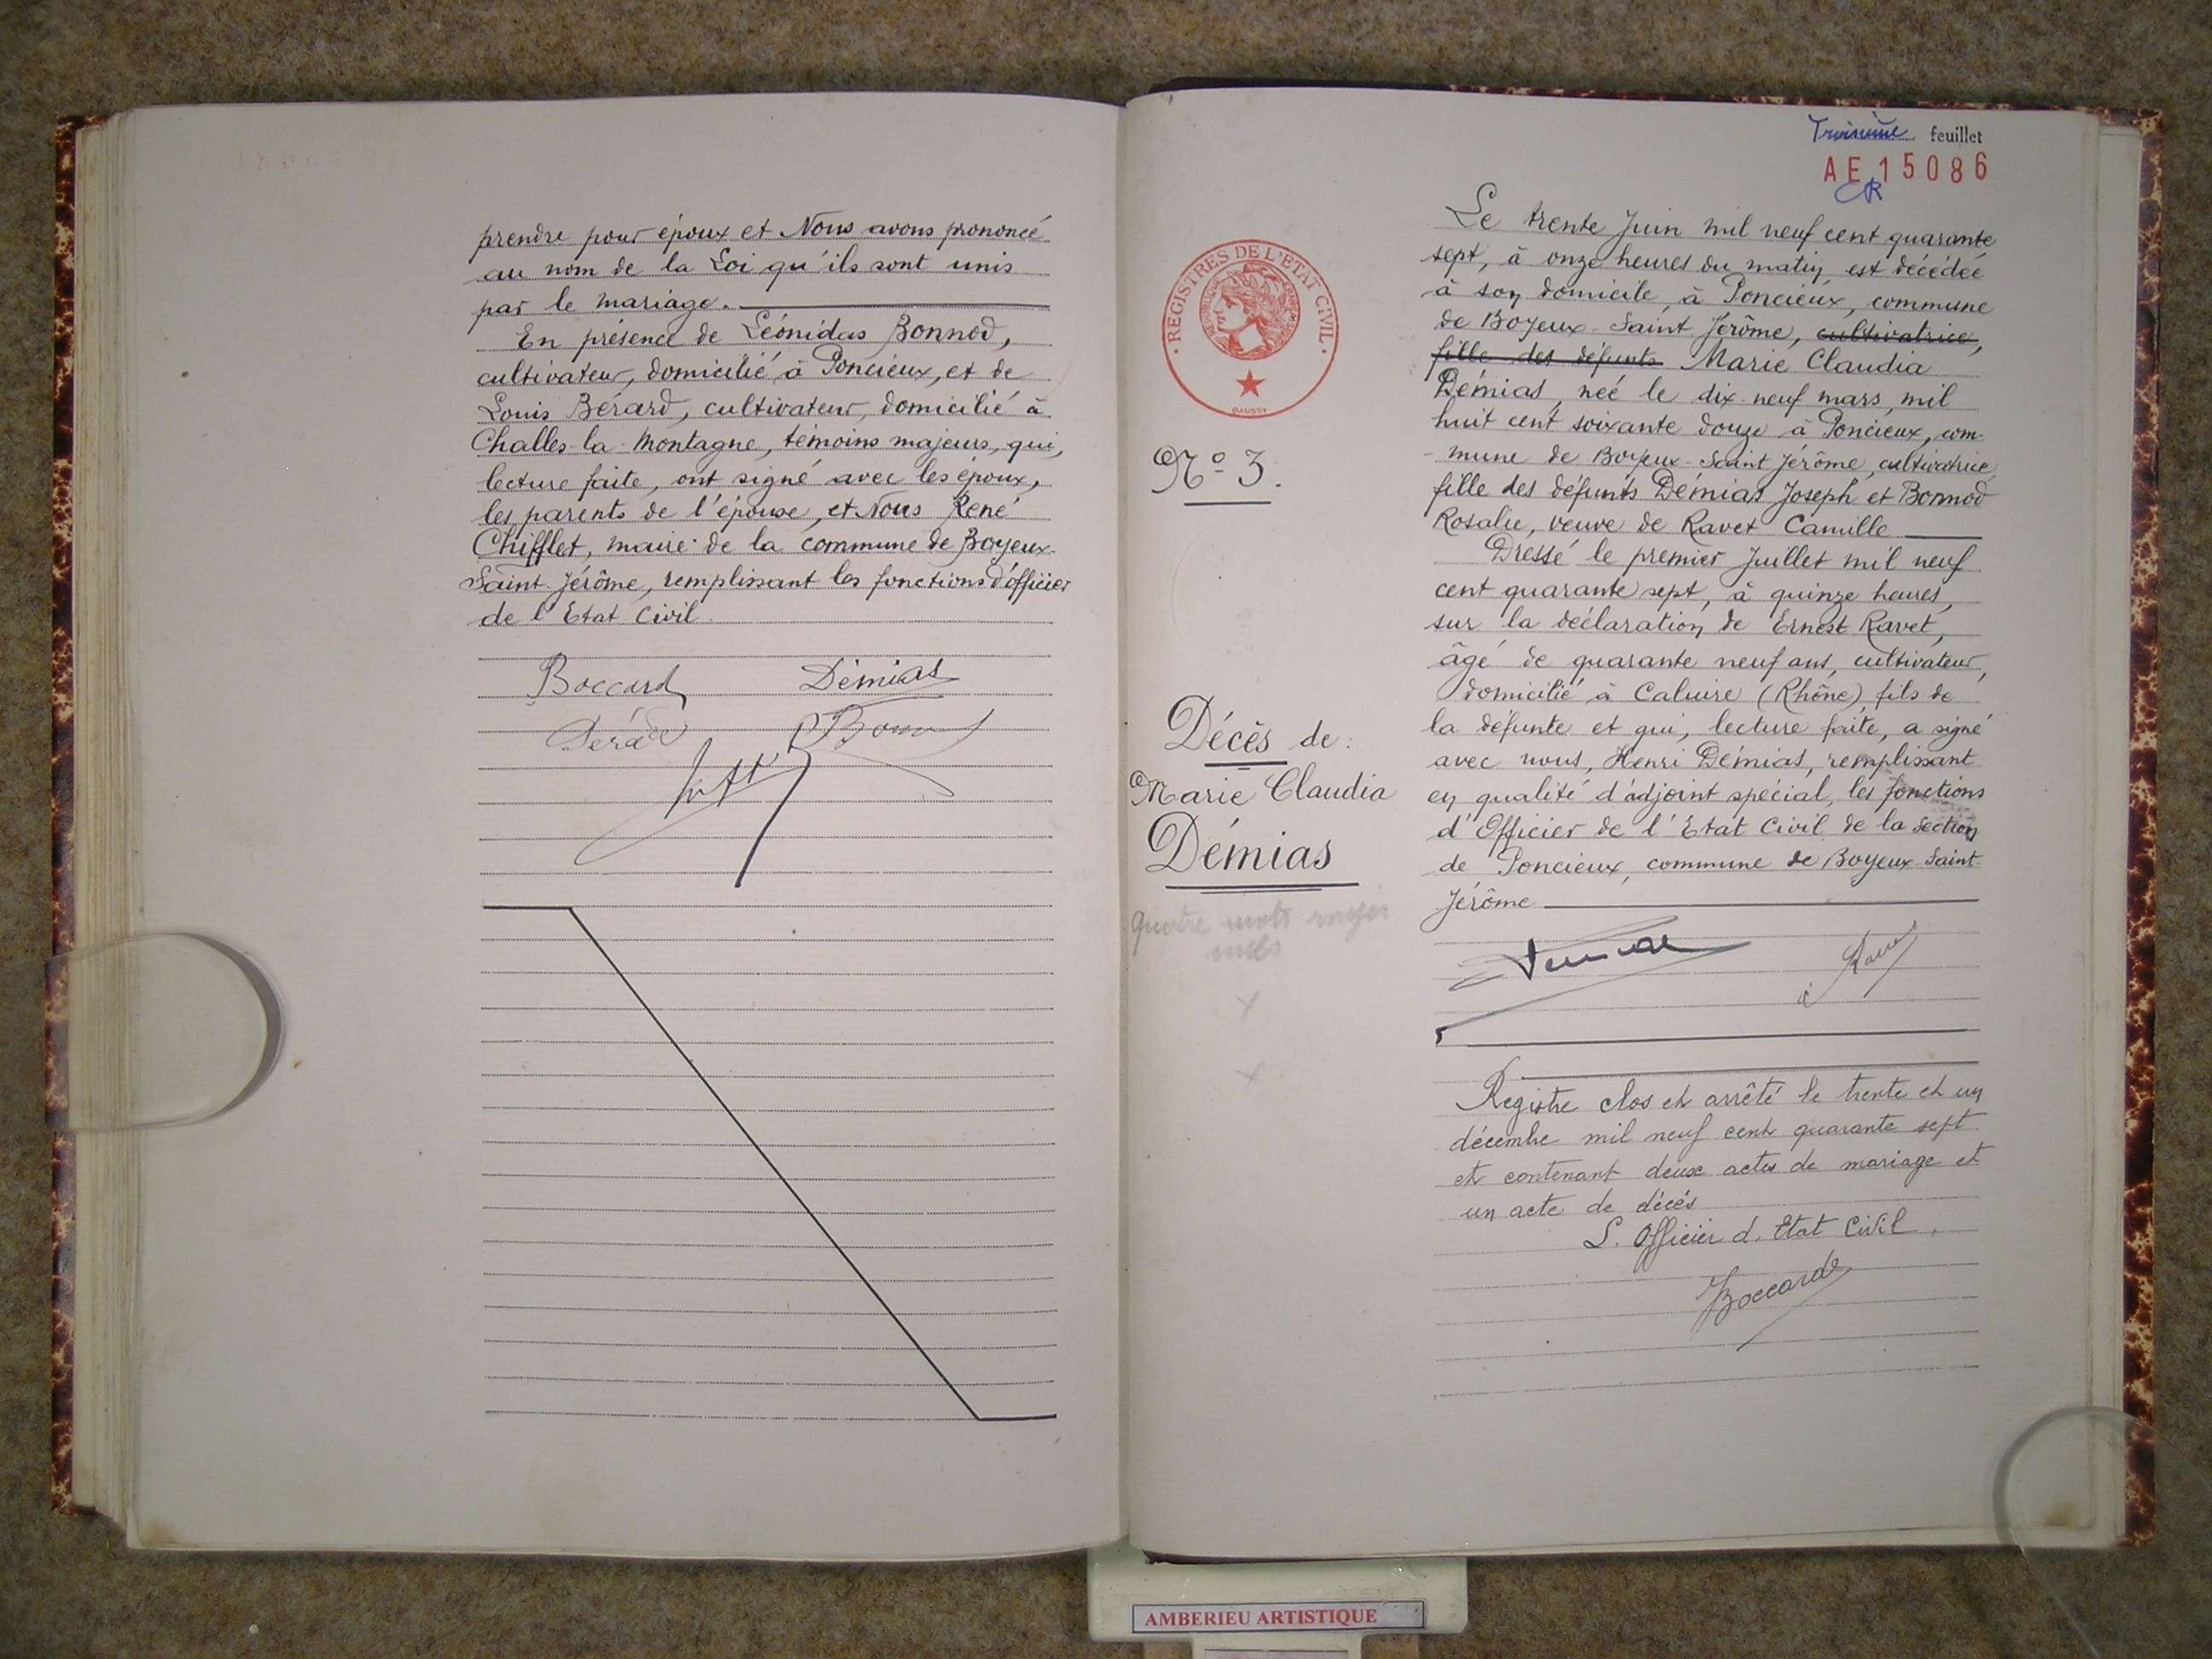 prendre pour époux et Nous avons prononcé
au nom de la Loi qu'ils sont unis
par le mariage.
En présence de Léonidas Bonnod,
cultivateur, domicilié à Poncieux, et de
Louis Bérard, cultivateur, domicilié à
Challes-la-Montagne, témoins majeurs, qui,
lecture faite, ont signé avec les époux,
les parents de l'épouse, et Nous René
Chifflet, maire de la commune de Boyeux-
Saint-Jérôme, remplissant les fonctions d'officier
de l'Etat Civil.
Boccard Démias
Troisième feuillet
AE 15086
CR
REGISTRES DE L'ETAT CIVIL
DAUSSY
N° 3.
Décès de:
Marie Claudia
Démias
quatre mots rayés
nuls
Le trente Juin mil neuf cent quarante
sept, à onze heures du matin est décédée
à son domicile, à Poncieux, commune
de Boyeux-Saint-Jérôme, cultivatrice,
fille des défunts Marie Claudia
Démias, neé le dix-neuf mars, mil
huit cent soixante douze à Poncieux, com-
-mune de Boyeux-Saint Jérôme, cultivatrice,
fille des défunts Démias Joseph et Bonnod
Rosalie, veuve de Ravet Camille
Dressé le premier Juillet mil neuf
cent quarante sept, à quinze heures,
sur la déclaration de Ernest Ravet,
âgé de quarante neuf ans, cultivateur,
domicilié à Caluire (Rhône), fils de
la défunte et qui, lecture faite, a signé
avec nous, Henri Démias, remplissant
en qualité d'adjoint spécial, les fonctions
d'Officier de l'Etat Civil de la section
de Poncieux, commune de Boyeux-Saint-
Jérôme
Registre clos et arrêté le trente et un
décembre mil neuf cent quarante sept
et contenant deux actes de mariage et
un acte de décés
L. Officier d. Etat Civil,
Boccard
AMBERIEU ARTISTIQUE